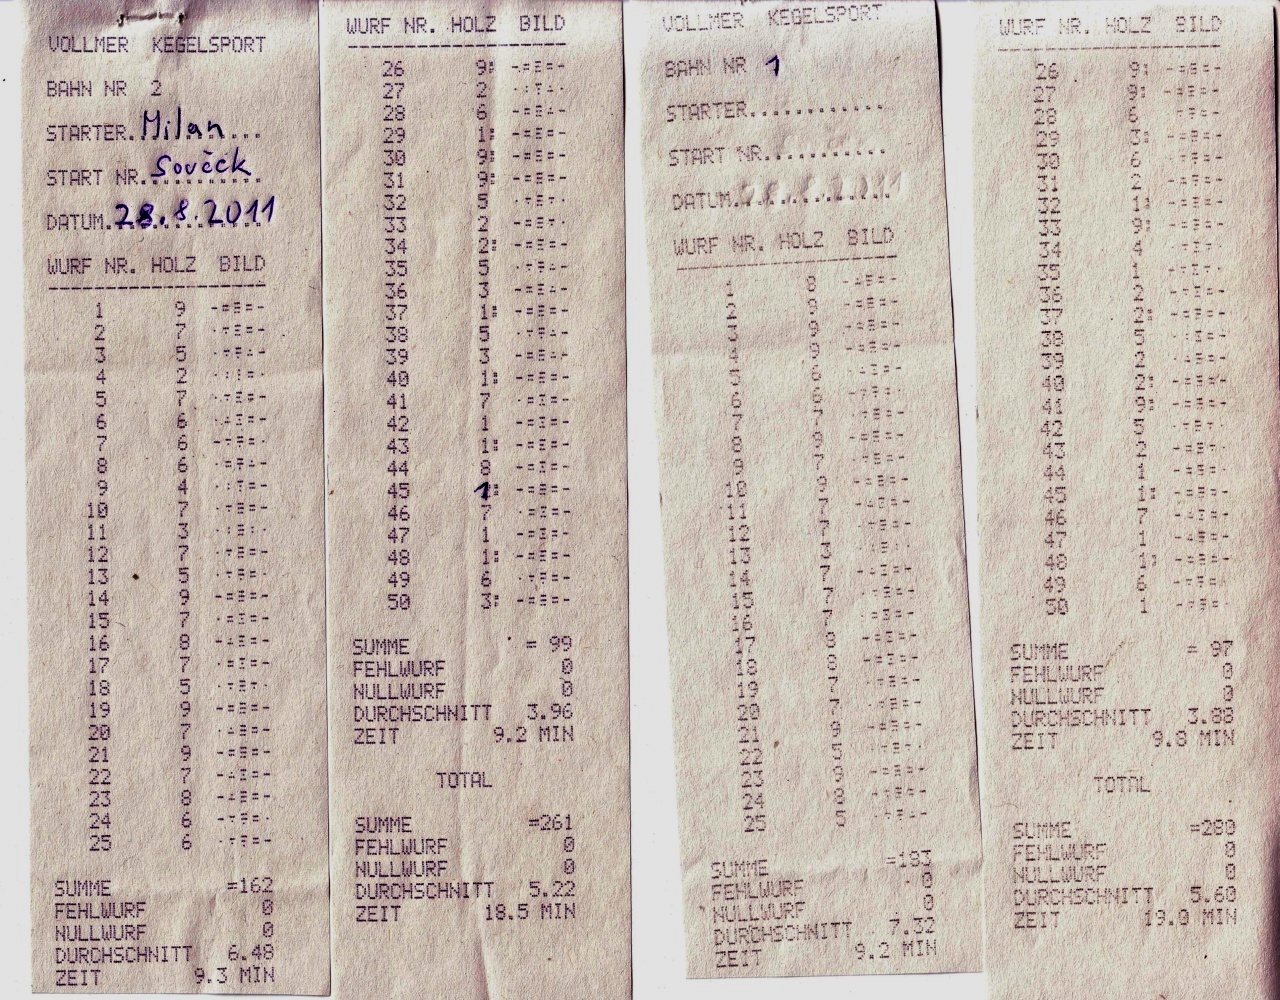 VOLLMER KEGELSPORT
BAHN NR 2
STARTER. Milan...
START NR. Sovčck
DATUM. 28.8.2011
WURF NR. HOLZ BILD
1 9
2 7
3 5
4 2
5 7
6 6
7 6
8 6
9 4
10 7
11 3
12 7
13 5
14 9
15 7
16 8
17 7
18 5
19 9
20 7
21 9
22 7
23 8
24 6
25 6
SUMME =162
FEHLWURF 0
NULLWURF 0
DURCHSCHNITT 6.48
ZEIT 9.3 MIN
WURF NR. HOLZ BILD
26 9:
27 2
28 6
29 1:
30 9:
31 9:
32 5
33 2
34 2:
35 5
36 3
37 1:
38 5
39 3
40 1:
41 7
42 1
43 1:
44 8
45 1:
46 7
47 1
48 1:
49 6
50 3:
SUMME = 99
FEHLWURF 0
NULLWURF 0
DURCHSCHNITT 3.96
ZEIT 9.2 MIN
TOTAL
SUMME =261
FEHLWURF 0
NULLWURF 0
DURCHSCHNITT 5.22
ZEIT 18.5 MIN
VOLLMER KEGELSPORT
BAHN NR 1
STARTER...........
START NR...........
DATUM..............
WURF NR. HOLZ BILD
1 8
2 9
3 9
4 9
5 6
6 6
7 7
8 9
9 7
10 9
11 7
12 7
13 3
14 7
15 7
16 7
17 8
18 8
19 7
20 7
21 9
22 5
23 9
24 8
25 5
SUMME =183
FEHLWURF 0
NULLWURF 0
DURCHSCHNITT 7.32
ZEIT 9.2 MIN
WURF NR. HOLZ BILD
26 9:
27 9:
28 6
29 3:
30 6
31 2
32 1:
33 9:
34 4
35 1
36 2
37 2:
38 5
39 2
40 2:
41 9:
42 5
43 2
44 1
45 1:
46 7
47 1
48 1:
49 6
50 1
SUMME = 97
FEHLWURF 0
NULLWURF 0
DURCHSCHNITT 3.88
ZEIT 9.8 MIN
TOTAL
SUMME =280
FEHLWURF 0
NULLWURF 0
DURCHSCHNITT 5.60
ZEIT 19.0 MIN